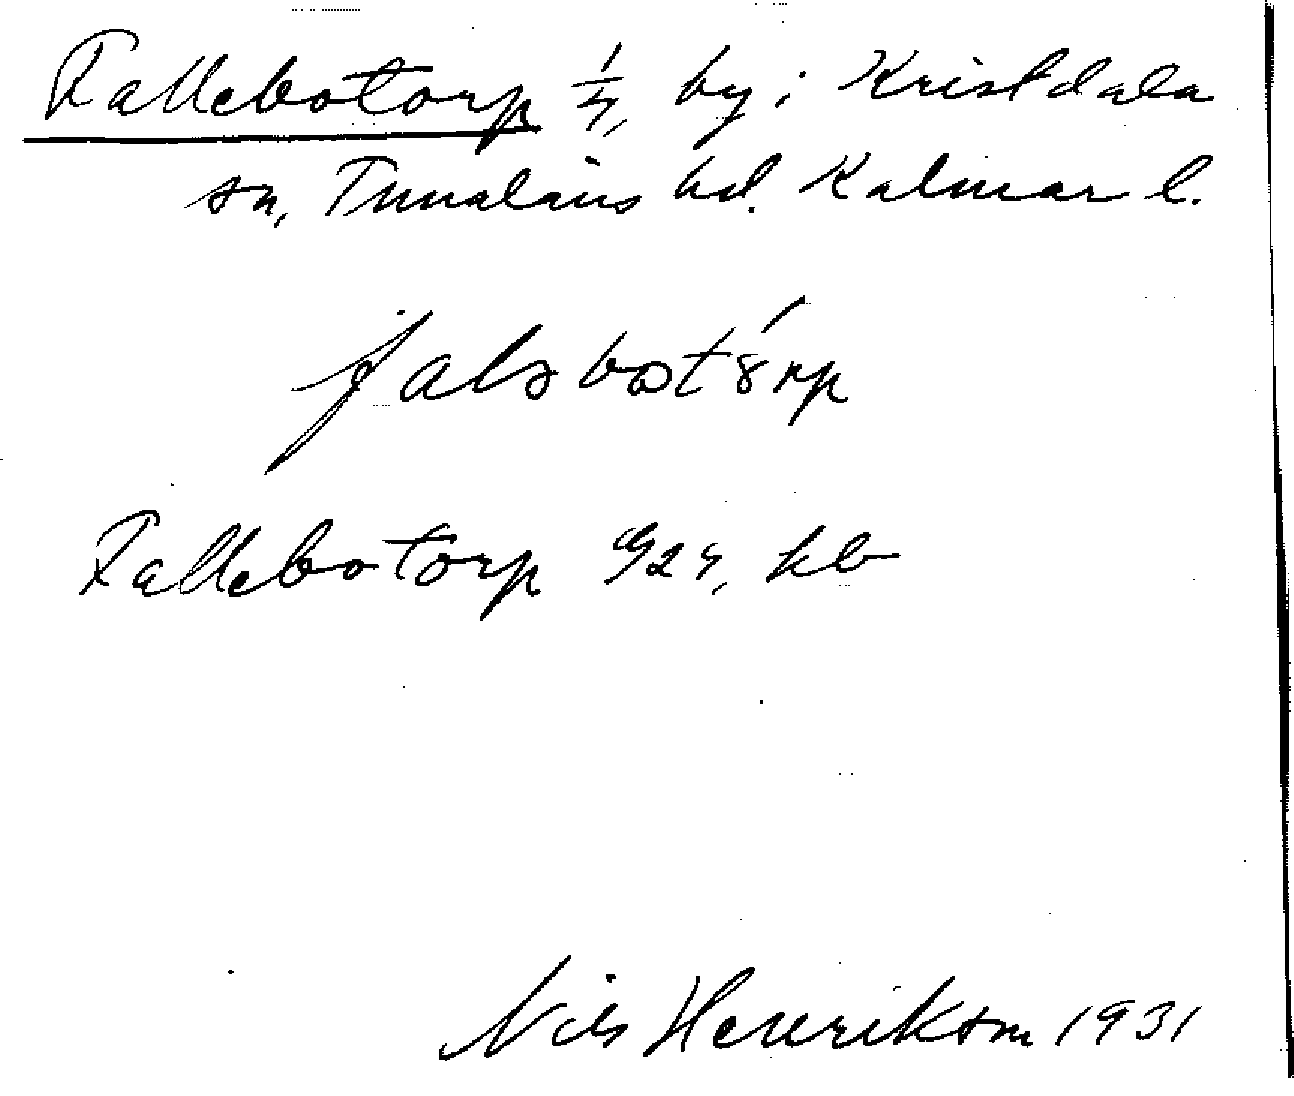 Fallebotorp 1/4, by i Kristdala
sn, Tunaläns hd. Kalmar l.
falsbotórp
Fallebotorp 924, kb
Nils Henrikson 1931